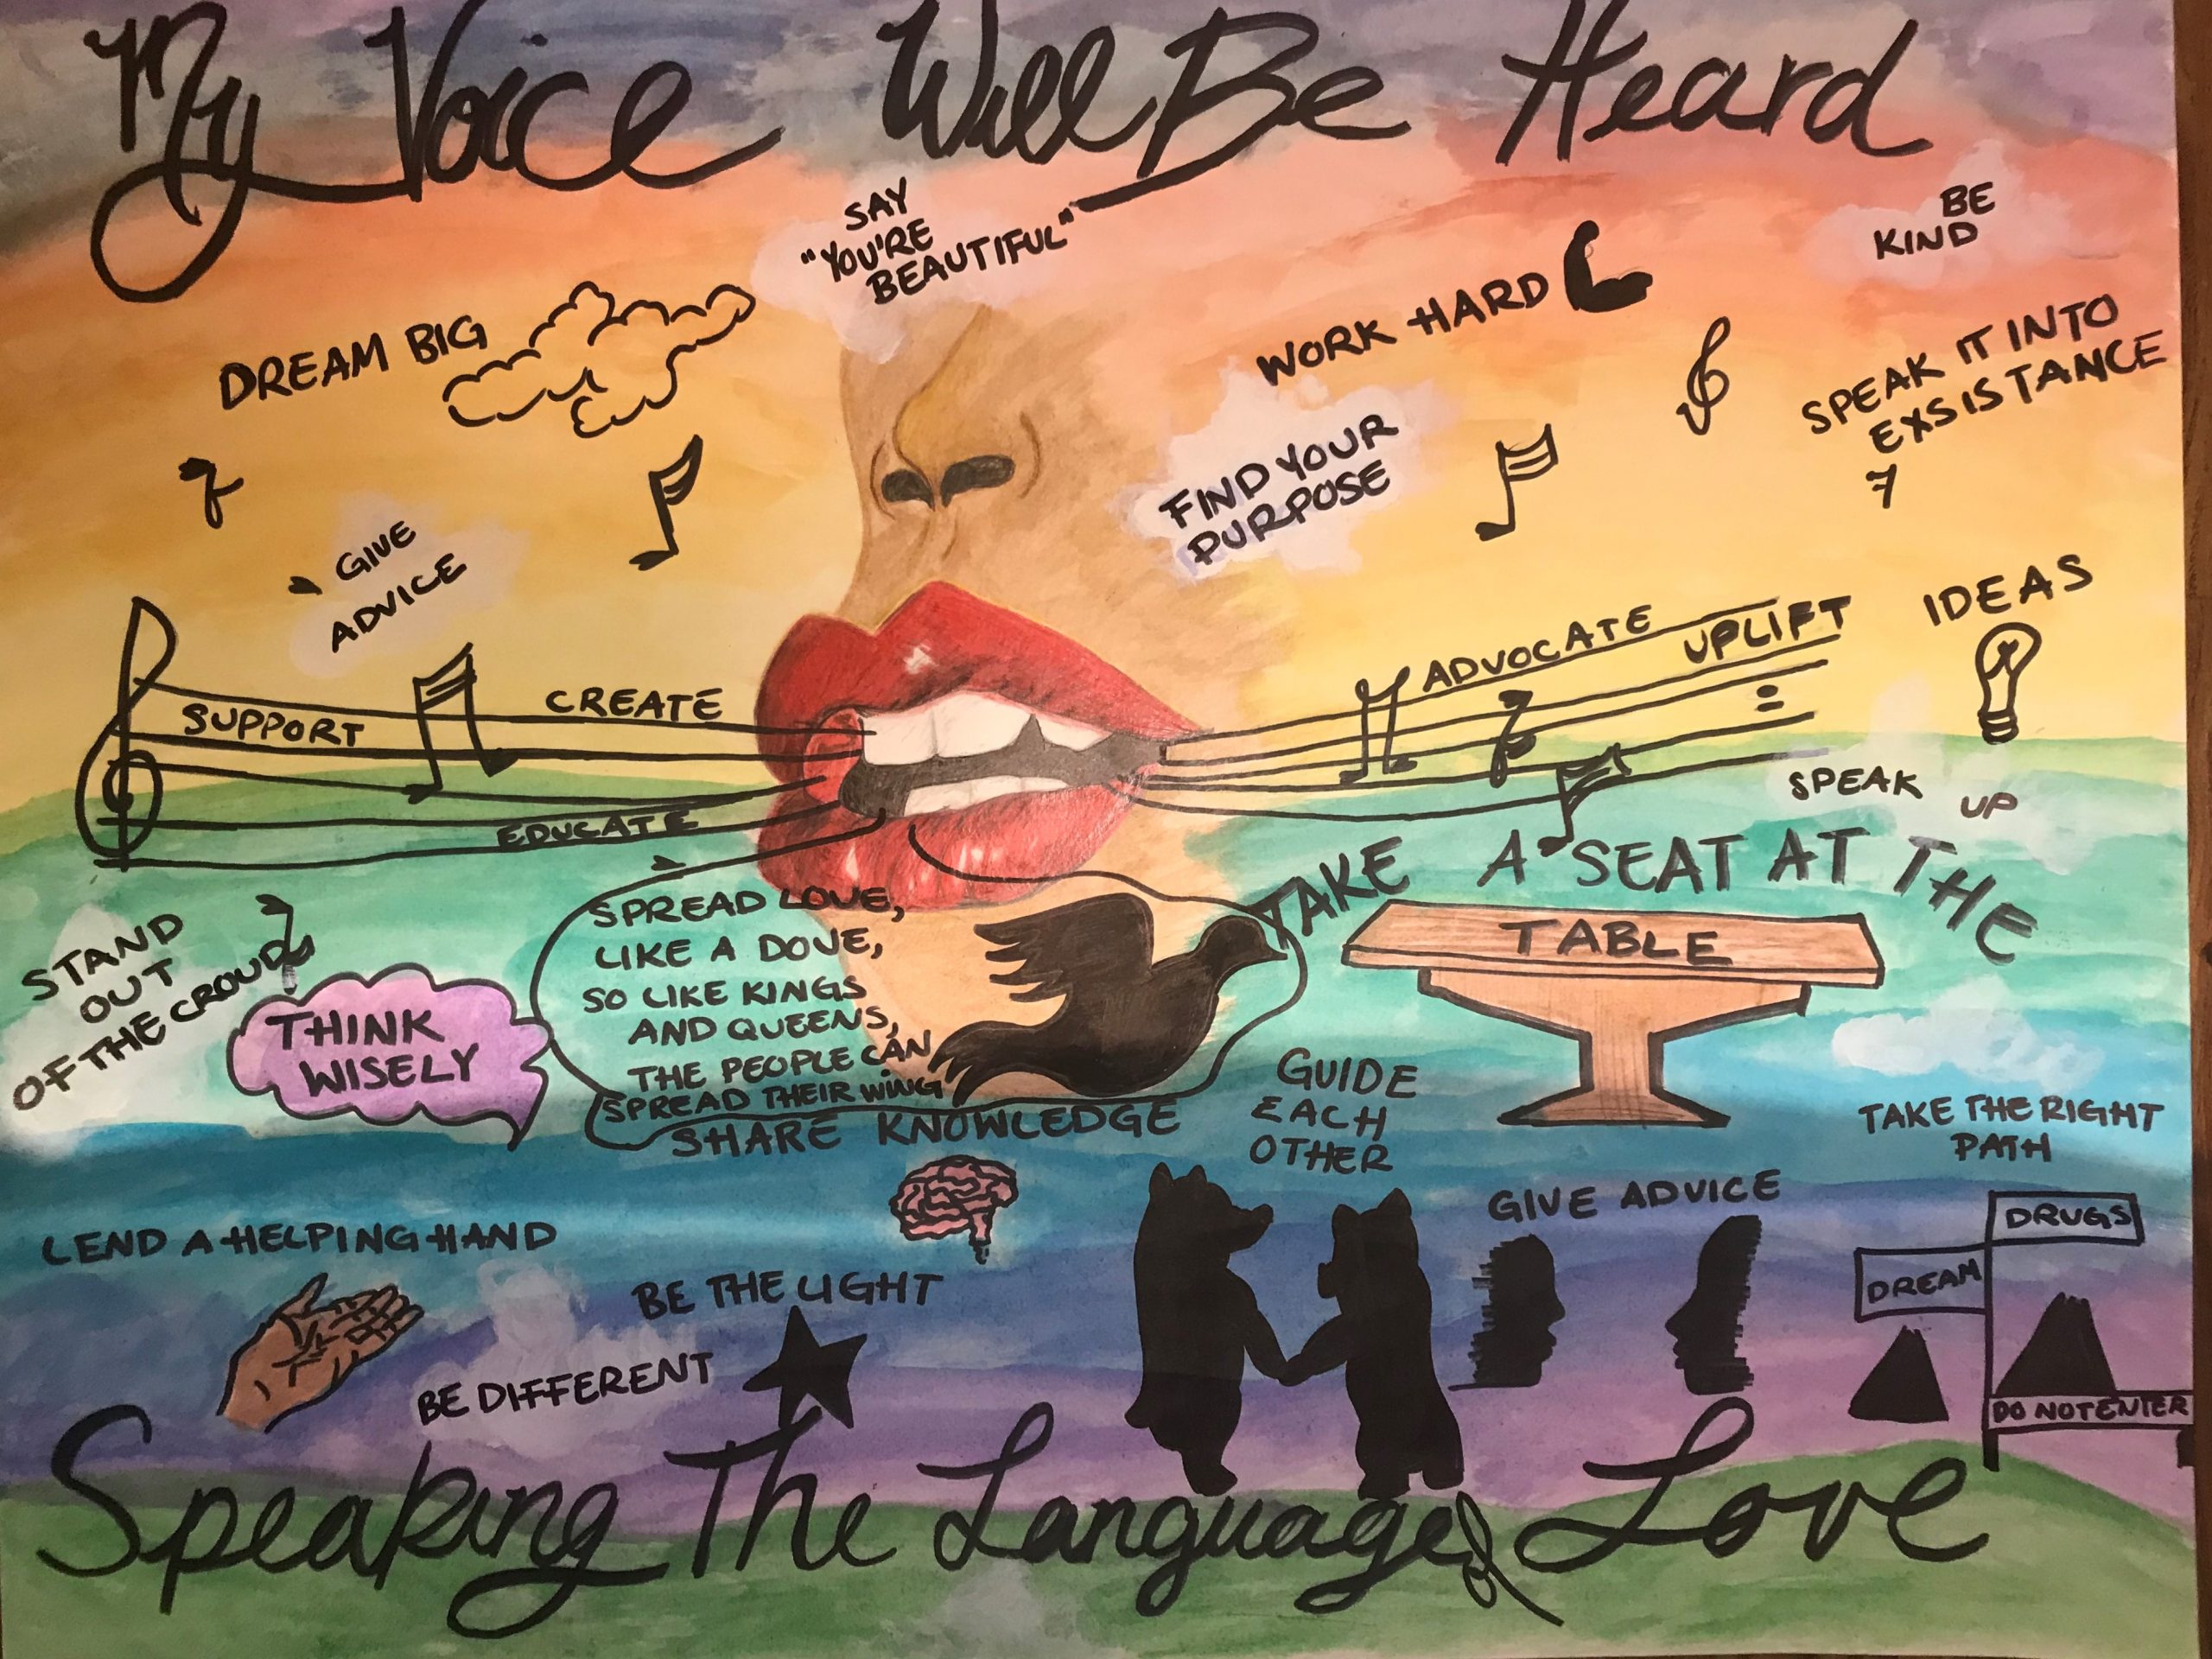 My Voice Will Be Heard
SAY
"YOU'RE
BEAUTIFUL"
BE
KIND
DREAM BIG
WORK HARD
SPEAK IT INTO
EXSISTANCE
FIND YOUR
PURPOSE
GIVE
ADVICE
IDEAS
SUPPORT
CREATE
EDUCATE
ADVOCATE
UPLIFT
SPEAK UP
TAKE A SEAT AT THE
TABLE
STAND
OUT
OF THE CROUD
THINK
WISELY
SPREAD LOVE,
LIKE A DOVE,
SO LIKE KINGS
AND QUEENS,
THE PEOPLE CAN
SPREAD THEIR WING
SHARE KNOWLEDGE
GUIDE
EACH
OTHER
TAKE THE RIGHT
PATH
GIVE ADVICE
DRUGS
DREAM
DO NOT ENTER
LEND A HELPING HAND
BE THE LIGHT
BE DIFFERENT
Speaking The Language of Love